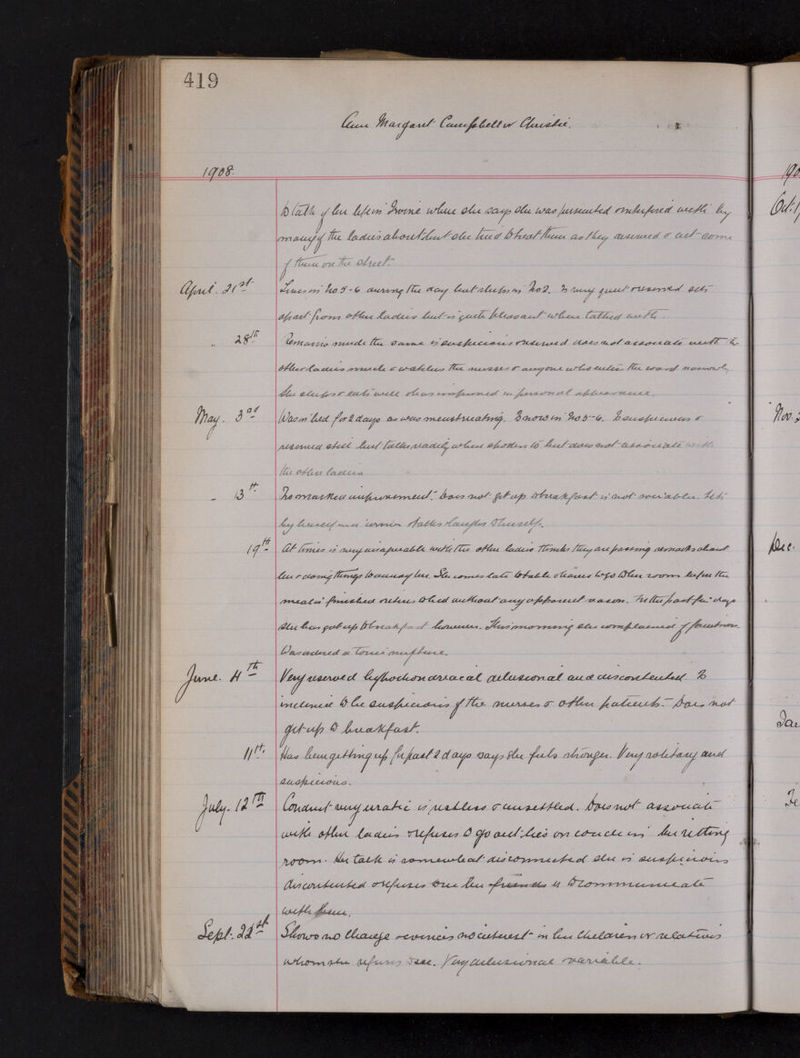 419
Ann Margaret Campbell or Christie.
1908
to talk of her life in Irvine where she says she was persecuted & interfered with by
many of the ladies about but she tried to treat them as they deserved & cut some
of them on the street.
April. 21st Lives in No 5-6 during the day but sleeps in No 2. Is very quiet & reserved sits
apart from other ladies but is quite pleasant when talked with.
" 28th Remains much the same is suspicious & reserved does not associate with
other ladies much & watches the nurses & anyone who enters the ward
She sleeps & eats well & has improved in personal appearance.
May. 3rd Was in bed for 2 days as was menstruating. Is now in No 5-6. Is suspicious &
reserved still but talks readily when spoken to but does not associate with
the other ladies
" 13th No marked improvement. Does not get up to breakfast is not sociable. Sits
by herself in a corner & talks & laughs to herself.
19th At times is very disagreeable with the other ladies thinks they are passing remarks about
her & doing things to annoy her. She comes late to table & leaves to go to her room before the
meal is finished & retires to bed without any apparent reason. In the past few days
she has got up to breakfast however. This morning she complained of
Was ordered a tonic mixture.
June. 4th Very reserved hypochondriacal delusional and discontented. Is
inclined to be suspicious of the nurses & other patients. Does not
get up to breakfast.
11th. Has been getting up for past 2 days says she feels stronger. Very solitary and
suspicious.
July. 12th Conduct very erratic is restless & unsettled. Does not associate
with other ladies & refuses to go out. lies on couch in her sitting
room. Her talk is somewhat disconnected she is suspicious
discontented & refuses to see her friends or to communicate
with them.
Sept. 22nd Shows no change & evinces no interest in her children or relatives
whom she refuses to see. Very delusional & variable.
190
Oct. 1
Nov.
Dec.
Jan